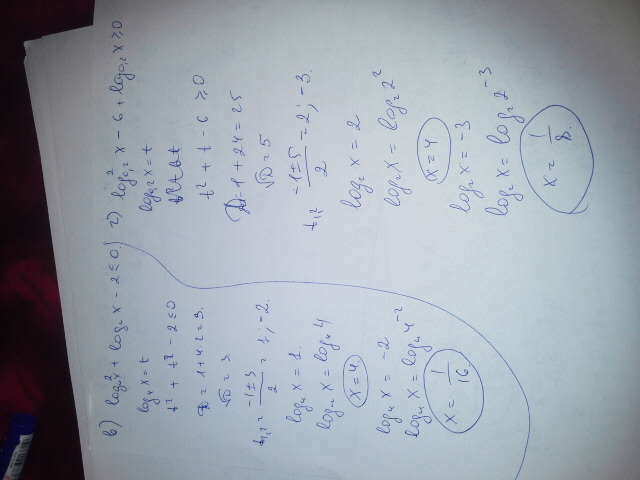 в) log₄²x + log₄ x - 2 ≤ 0
log₄ x = t
t² + t² - 2 ≤ 0
D = 1 + 4·2 = 9.
√D = 3
t₁,₂ = (-1 ± 3)/2 = 1; -2.
log₄ x = 1.
log₄ x = log₄ 4
x = 4.
log₄ x = -2
log₄ x = log₄ 4⁻²
x = 1/16.
г) log₀,₂² x - 6 + log₀,₂ x ≥ 0
log₀,₂ x = t
t² + t - 6 ≥ 0
D = 1 + 24 = 25
√D = 5
t₁,₂ (-1 ± 5)/2 = 2; -3.
log₂ x = 2
log₂ x = log₂ 2²
x = 4
log₂ x = -3
log₂ x = log₂ 2⁻³
x = 1/8.